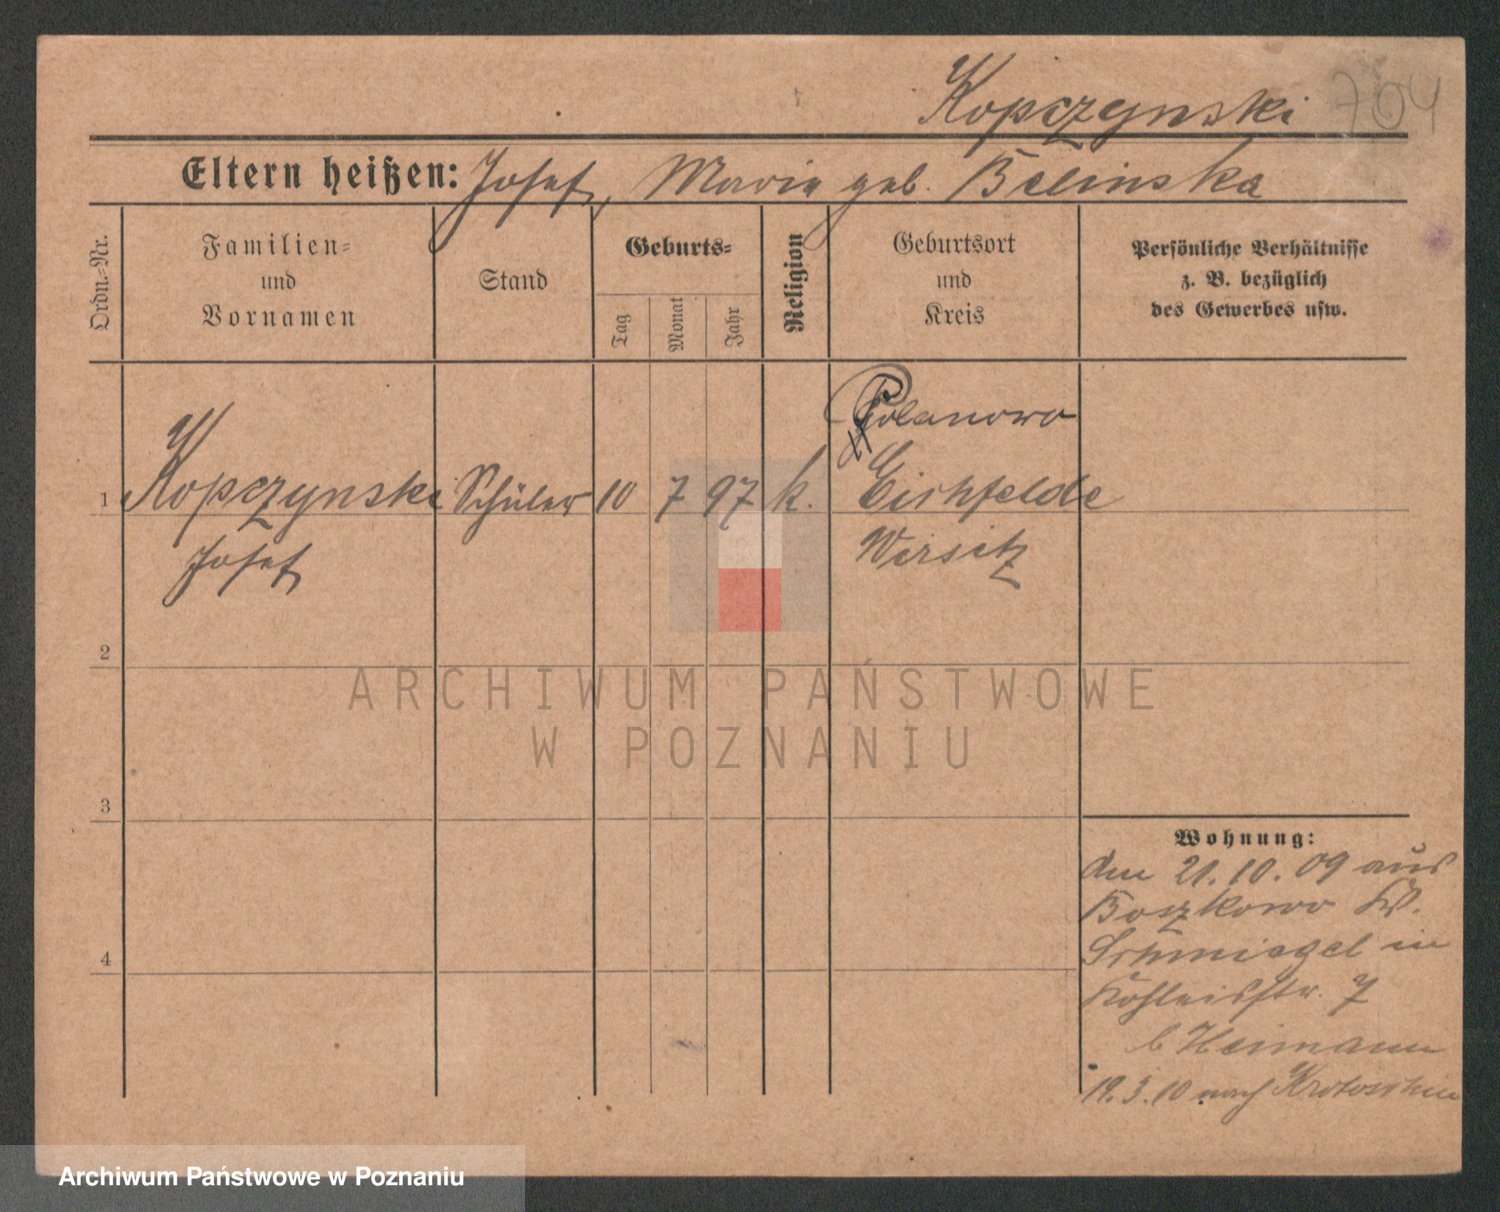 Kopczynski 704
Eltern heißen: Josef, Marie geb. Bilinska
Ordn.-Nr.
Familien-
und
Vornamen
Stand
Geburts-
Tag
Monat
Jahr
Religion
Geburtsort
und
Kreis
Persönliche Verhältnisse
z. B. bezüglich
des Gewerbes usw.
Polanowo
1 Kopczynski Schüler 10 7 97 k. Eichfelde
Josef Wirsitz
2
ARCHIWUM PAŃSTWOWE
W POZNANIU
3
Wohnung:
den 21.10.09 aus
Boszkowo Kr.
Schmiegel in
str. 7
b Heimann
4
19.3.10 nach Krotoschin
Archiwum Państwowe w Poznaniu